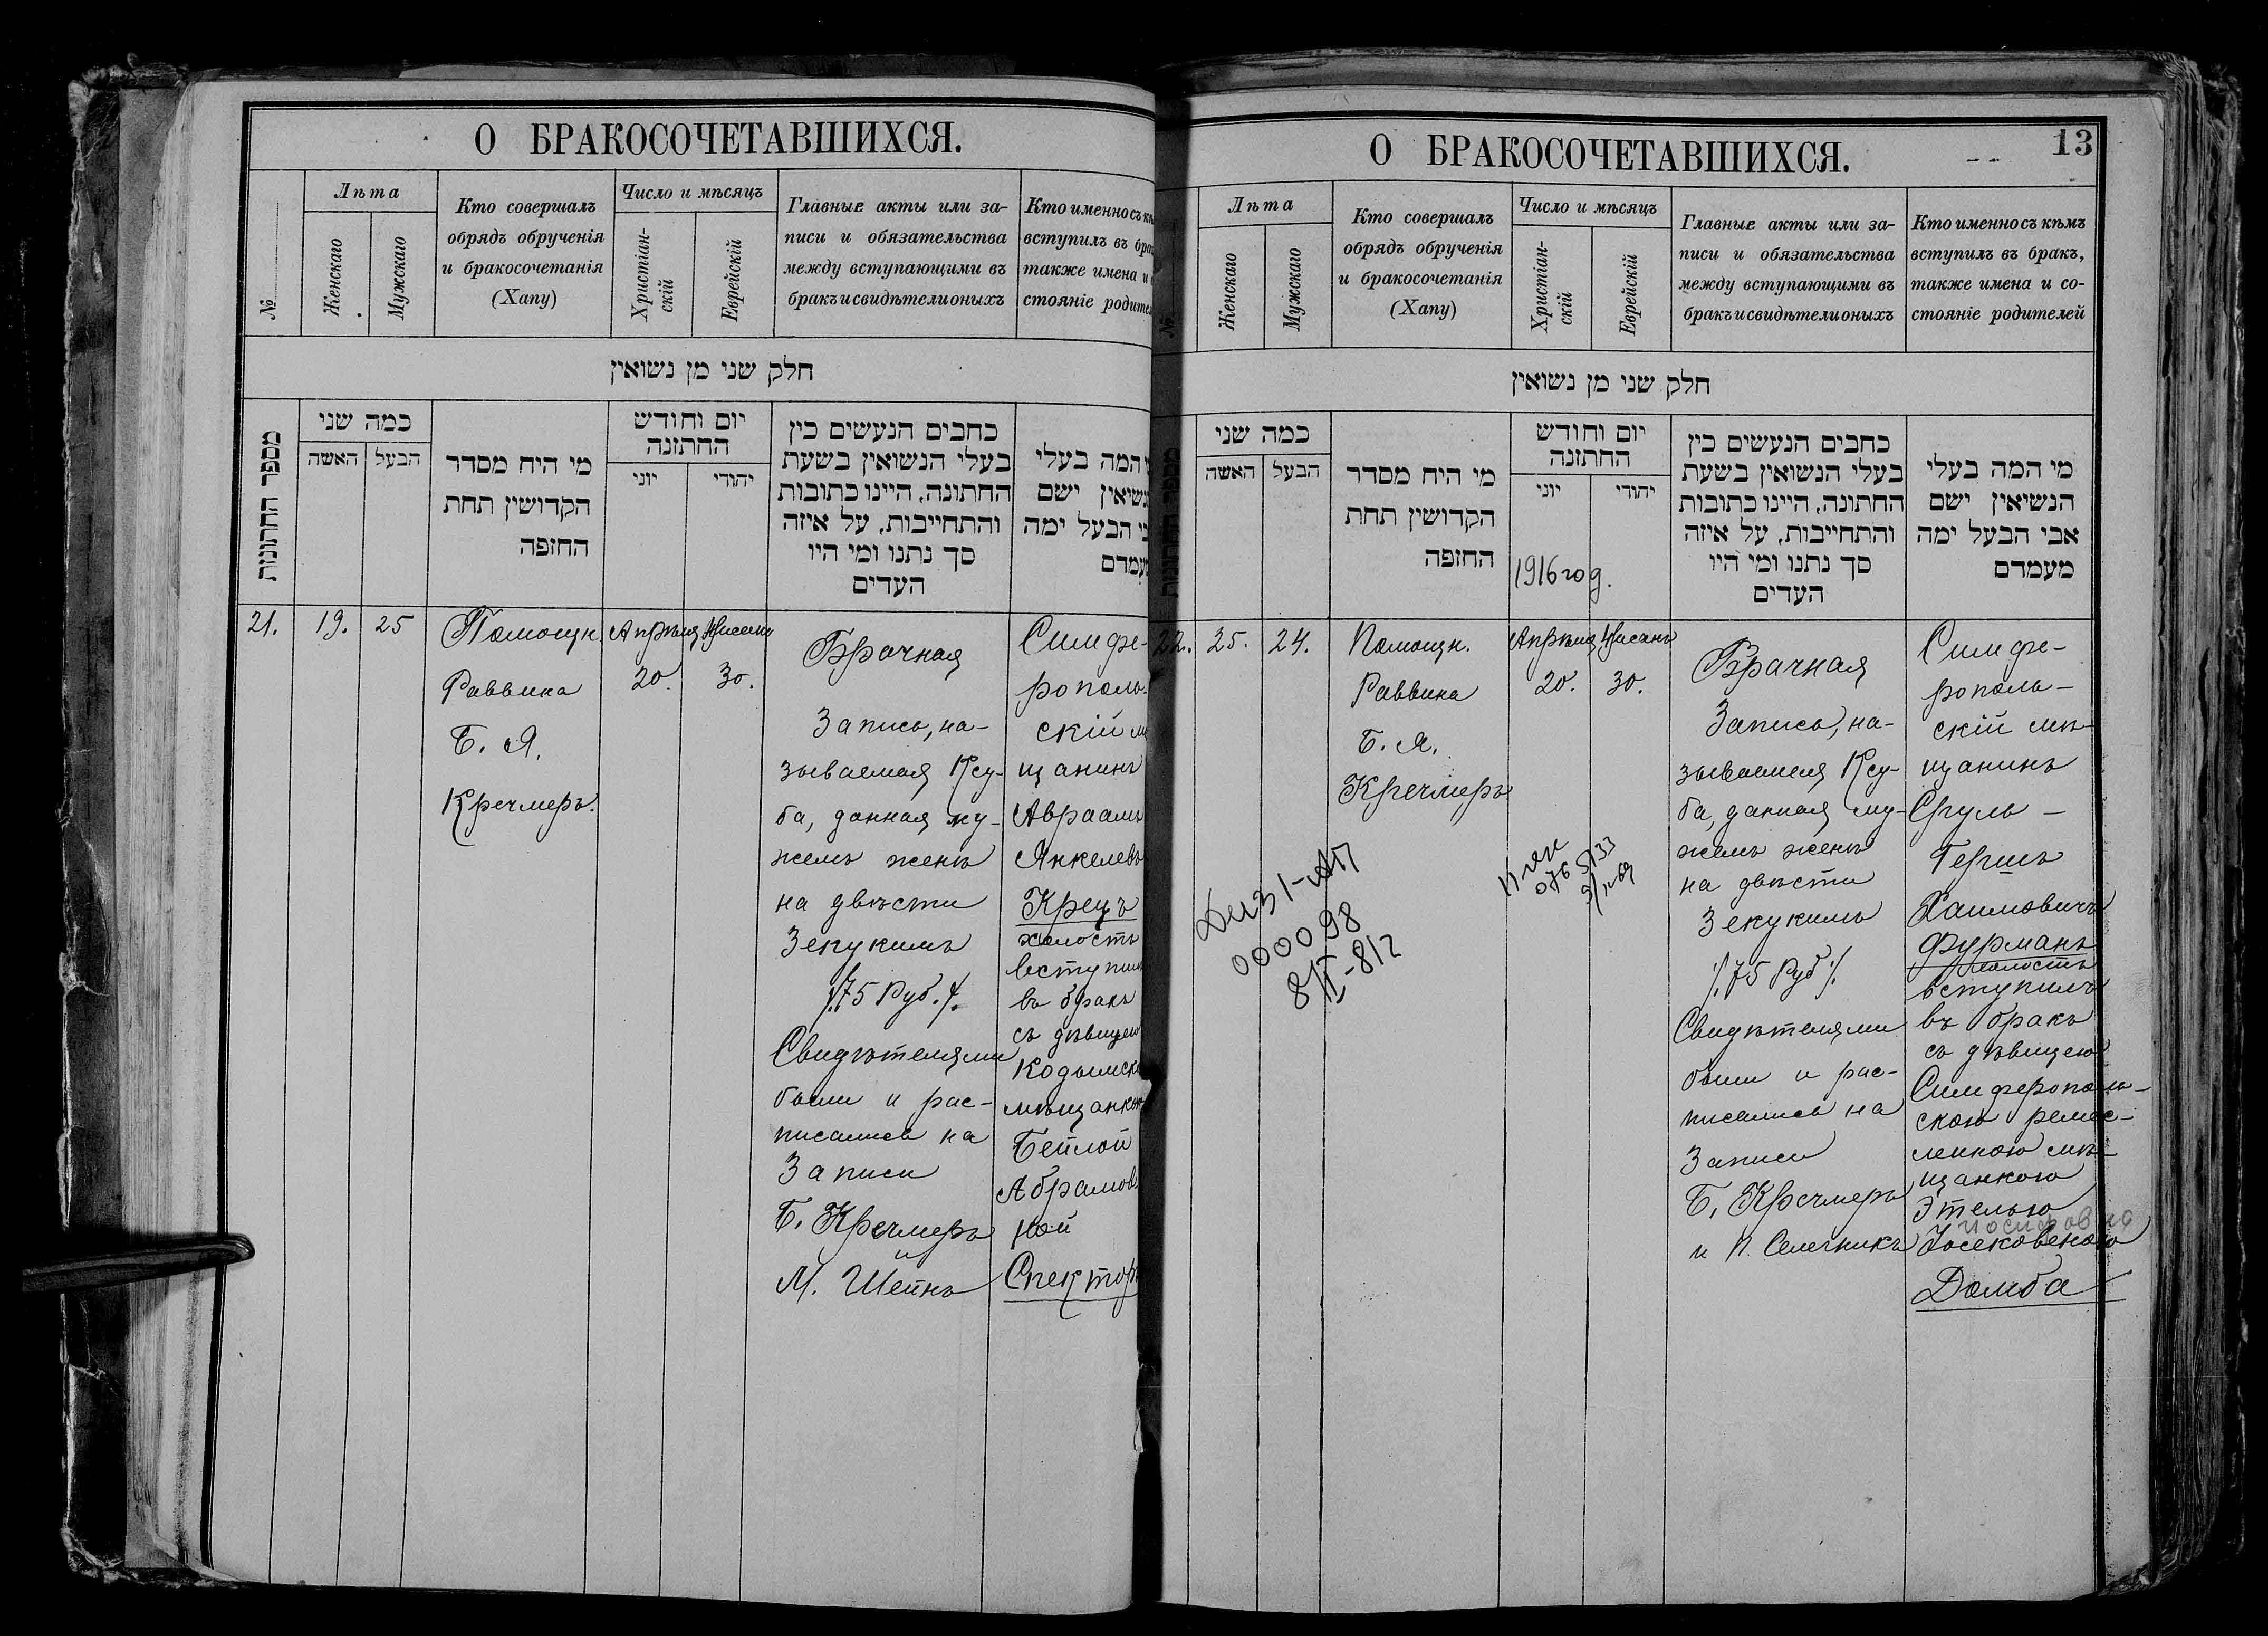 О БРАКОСОЧЕТАВШИХСЯ.
№
Лѣта
Женскаго
Мужскаго
Кто совершалъ
обрядъ обрученія
и бракосочетанія
(Хапу)
Число и мѣсяцъ
Христіан-
скій
Еврейскій
Главные акты или за-
писи и обязательства
между вступающими въ
бракъ и свидѣтели оныхъ
Кто именно съ
вступилъ въ
также имена и
стояніе
חלק שני מן נשואין
מספר החתונות
כמה שני
האשה
הבעל
מי היח מסדר
הקדושין תחת
החופה
יום וחודש
החתונה
יוני
יהודי
כחבים הנעשים כין
בעלי הנשואין בשעת
החתונה, היינו כתובות
והתחייבות, על איזה
סך נתנו ומי היו
העדים
המה בעלי
ישם
הבעל ימה
21.
19.
25
Помощн.
Раввина
Б. Я.
Кречмеръ.
Апрѣля
20.
Нисанъ
30.
Брачная
Запись, на-
зываемая Ксу-
ба, данная му-
жемъ женѣ
на двѣсти
Зекукимъ
/.75 Руб./.
Свидѣтелями
были и рас-
писались на
Записи
Б. Кречмеръ
и
М. Шейнъ
Симфе-
рополь-
скій
щанинъ
Авраамъ
Янкелевъ
Крецъ
холостъ
вступилъ
въ бракъ
съ дѣвицею
Кодымск
мѣщанкою
Бейлой
Абрамов
ной
Спекторъ
О БРАКОСОЧЕТАВШИХСЯ.
13
№
Лѣта
Женскаго
Мужскаго
Кто совершалъ
обрядъ обрученія
и бракосочетанія
(Хапу)
Число и мѣсяцъ
Христіан-
скій
Еврейскій
Главные акты или за-
писи и обязательства
между вступающими въ
бракъ и свидѣтели оныхъ
Кто именно съ кѣмъ
вступилъ въ бракъ,
также имена и со-
стояніе родителей
חלק שני מן נשואין
כמה שני
האשה
הבעל
מי היח מסדר
הקדושין תחת
החופה
יום וחודש
החתונה
יוני
יהודי
1916 год.
כחבים הנעשים כין
בעלי הנשואין בשעת
החתונה, היינו כתובות
והתחייבות, על איזה
סך נתנו ומי היו
העדים
מי המה בעלי
הנשיאין ישם
אבי הבעל ימה
מעמדם
22.
25.
24.
Помощн.
Раввина
Б. Я.
Кречмеръ
Апрѣля
20.
Нисанъ
30.
000098
Брачная
Запись, на-
зываемая Ксу-
ба, данная му-
жемъ женѣ
на двѣсти
Зекукимъ
/.75 Руб/.
Свидѣтелями
были и рас-
писались на
Записи
Б. Кречмеръ
и
Симфе-
рополь-
скій мѣ-
щанинъ
Сруль-
Гершъ
Хаимовичъ
Фурманъ
холостъ
вступилъ
въ бракъ
съ дѣвицею
Симферополь-
скою ремес-
ленною мѣ-
щанкою
Этелью
Домба